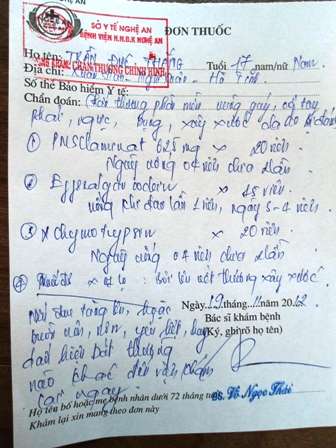 SỞ Y TẾ NGHỆ AN
BỆNH VIỆN H.N.Đ.K NGHỆ AN
ĐƠN THUỐC
Họ tên: TRẦN ĐỨC THẮNG Tuổi 17 nam/nữ Nam
PHÒNG KHÁM: CHẤN THƯƠNG CHỈNH HÌNH
Địa chỉ: Xuân Lam - Nghi Xuân - Hà Tĩnh
Số thẻ Bảo hiểm Y tế:
Chẩn đoán: Chấn thương phần mềm vùng gáy, cổ tay
phải, ngực, bụng, xây xước da do
① PMSClaminat 625mg x 20 viên
Ngày uống 04 viên chia 2 lần
② Efferalgan codein x 15 viên
uống khi đau lần 1 viên, ngày 3-4 viên
③ αchymotrypsin x 20 viên
Ngày uống 04 viên chia 2 lần
④ x 01 lọ : bôi lên vết thương xây xước
Nếu đau tăng lên, hoặc
Ngày 12 tháng 11 năm 2012
buồn nôn, nôn, yếu liệt, hay
Bác sĩ khám bệnh
(Ký, ghi rõ họ tên)
dấu hiệu bất thường
nào khác đến viện khám
lại ngay
BS. Võ Ngọc Thái
Họ tên bố hoặc mẹ bệnh nhân dưới 72 tháng tuổi
Khám lại xin mang theo đơn này